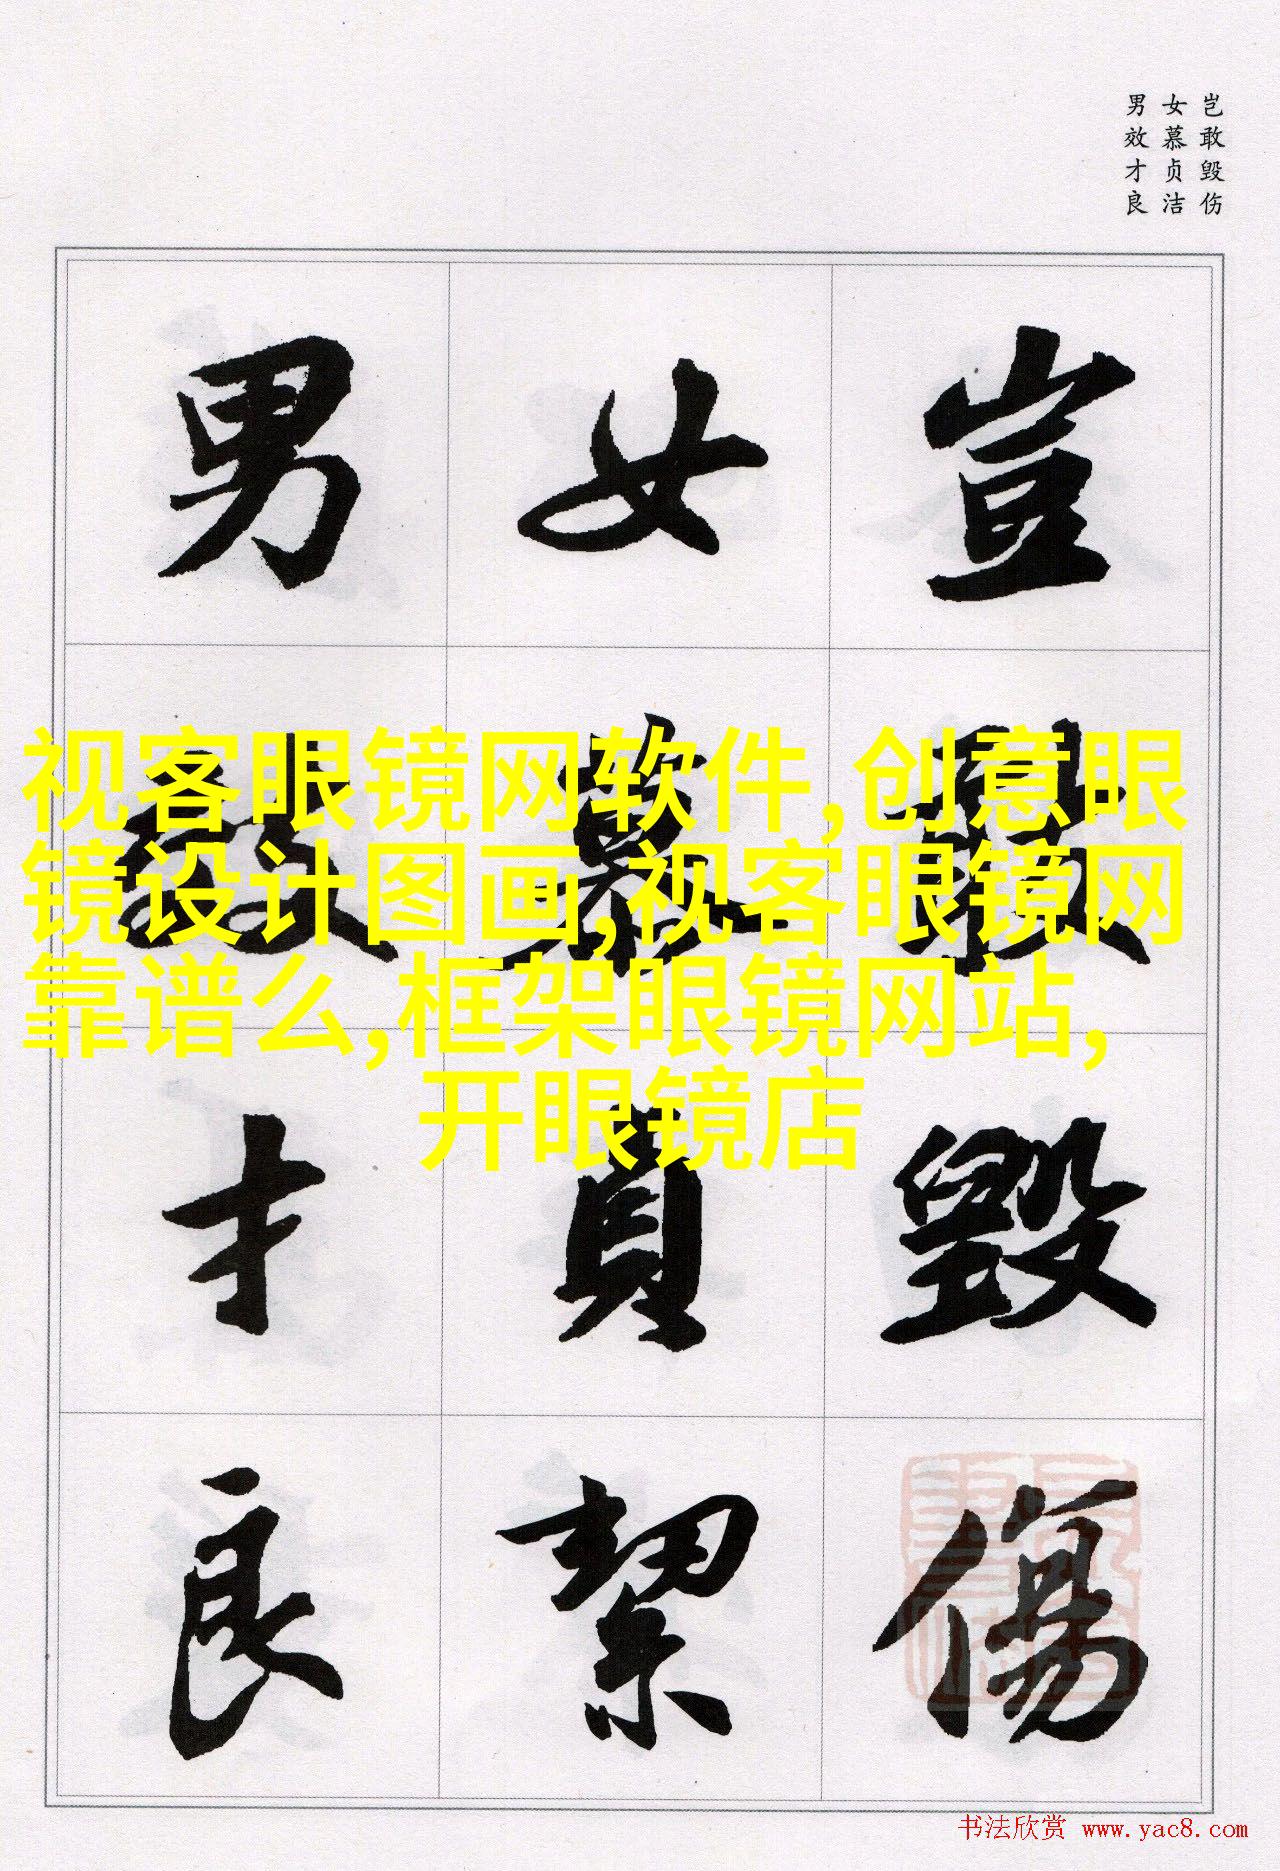 岂敢毁伤
女慕贞洁
男效才良
豈敢毀傷
女慕貞絜
男效才良
视客眼镜网软件,创意眼
镜设计图画,视客眼镜网
靠谱么,框架眼镜网站,
开眼镜店
书法欣赏 www.yac8.com